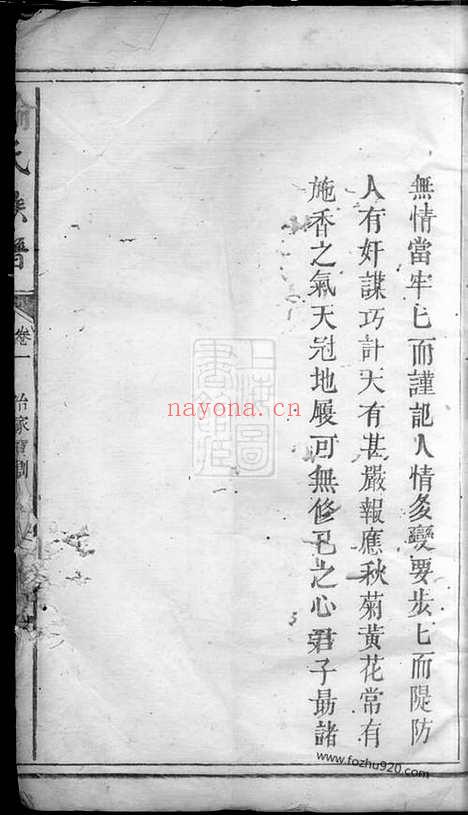 無情當牢匕而謹記人情多變要步匕而隄防
人有奸謀巧計天有甚嚴報應秋菊黃花常有
施香之氣天冠地履可無修己之心君子勗諸
氏族譜
卷一
治家
nayona.cn
www.fozhu920.com